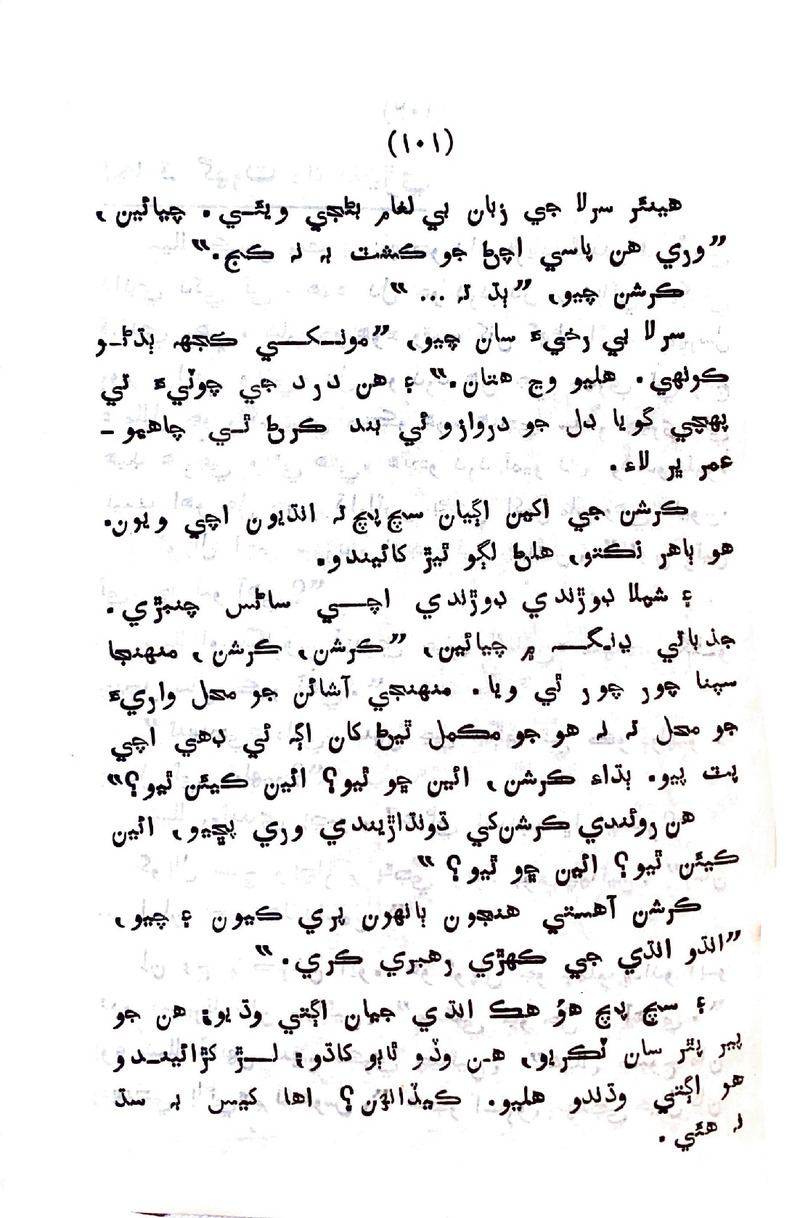 (١٠١)
هينئر سرلا جي زبان بي لغام بڻجي ويئـي. چيائين،
”وري هن پاسي اچڻ جو ڪشت بہ نہ ڪج.“
ڪرشن چيو، ”ٻڌ تہ ... “
سرلا بي رخيءَ سان چيو، ”مونـکـي ڪجهہ ٻڌڻـو
ڪونهي. هليو وڃ هتان.“ ۽ هن درد جي چوٽيءَ تي
پهچي گويا دل جو دروازو ئي بند ڪرڻ ٿـي چاهيو -
عمر ڀر لاءِ.
ڪرشن جي اکين اڳيان سچ پچ نہ انڌيون اچي ويون.
هو ٻاهر نڪتو، هلڻ لڳو ٿيڙ کائيندو.
۽ شملا ڊوڙندي ڊوڙندي اچـي ساڻس چنبڙي.
جذباتي ڍنگـ ۾ چيائين، ”ڪرشن، ڪرشن، منهنجا
سپنا چور چور ٿي ويا. منهنجي آشائن جو محل واريءَ
جو محل تہ نہ هو جو مڪمل ٿيڻ کان اڳ ئي ڊهي اچي
پٽ پيو. ٻڌاءِ ڪرشن، ائين ڇو ٿيو؟ ائين ڪيئن ٿيو؟“
هن روئندي ڪرشن کي ڌونڌاڙيندي وري پڇيو، ائين
ڪيئن ٿيو؟ ائين ڇو ٿيو؟ “
ڪرشن آهستي هنجون ٻانهون پري ڪيون ۽ چيو،
”انڌو انڌي جي ڪهڙي رهبري ڪري.“
۽ سچ پچ هؤ هڪ انڌي جيان اڳتي وڌيو؛ هن جو
پير پٿر سان ٽڪريو، هـن وڏو ٿاٻو کاڌو؛ لـڙ کڙائينـدو
هو اڳتي وڌندو هليو. ڪيڏانهن؟ اها کيس بہ سڌ
نہ هئي.